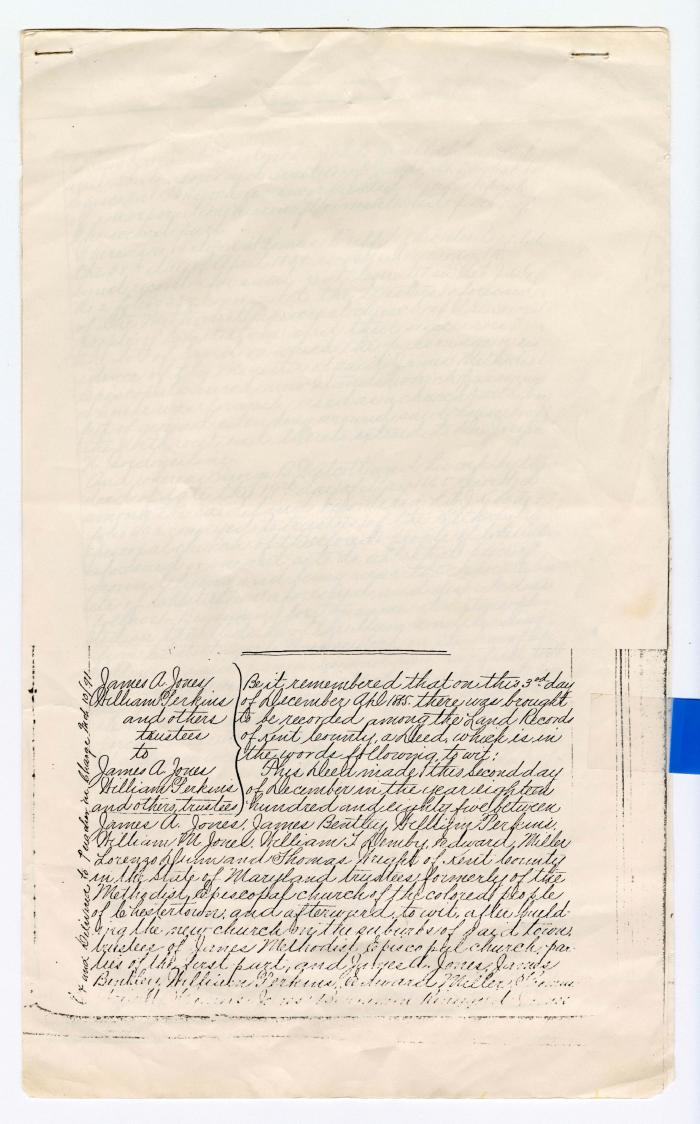 James A Jones
William Perkins
and others
trustees
to
James A Jones
William Perkins
and others, trustees
Be it remembered that on this 3rd day
of December A.D. 1885. there was brought
to be recorded among the Land Records
of Kent County, a Deed, which is in
the words following, to wit:
This Deed made this second day
of December in the year eighteen
hundred and eighty five between
James A. Jones, James Bentley, William Perkins,
William M Jones, William T Demby, Edward Miller
Lorenzo and Thomas Wright of Kent County
in the State of Maryland trustees formerly of the
Methodist Episcopal church of the colored people
of Chestertown, and afterward, to wit, after build-
ing the new church in the suburbs of said town,
trustees of Janes Methodist Episcopal church, par-
ties of the first part, and James A. Jones, James
Bentley, William Perkins, Edward Miller,
and Delivered to in charge